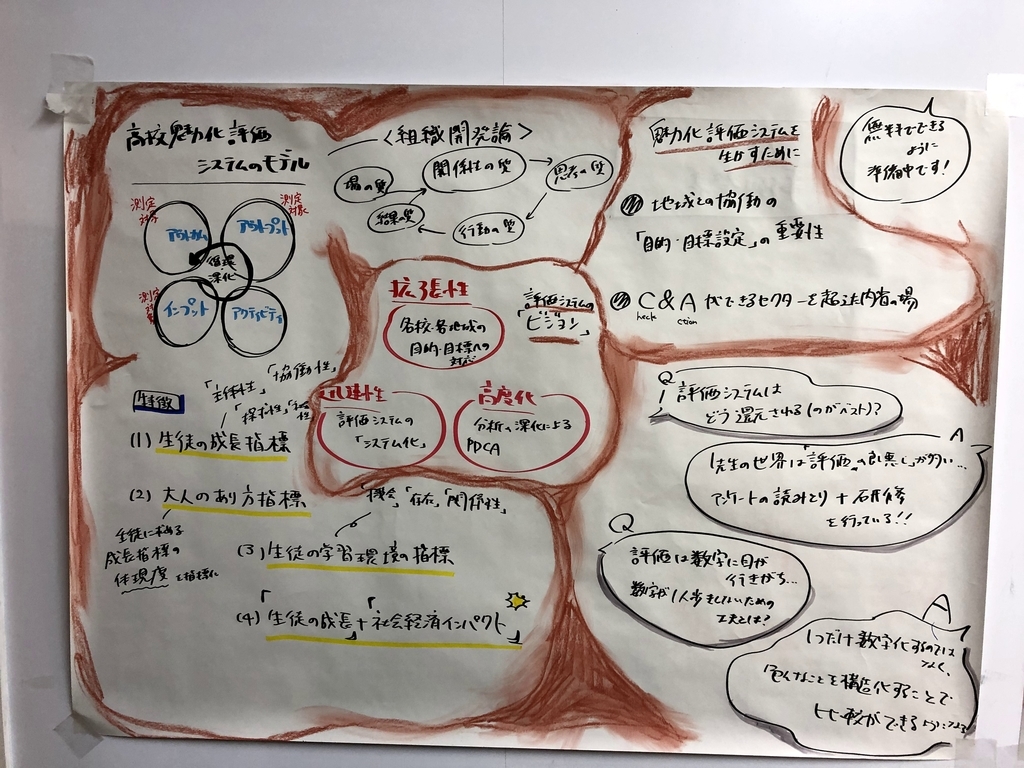 高校魅力化評価
システムのモデル
測定
対象
測定
対象
アウトカム
アウトプット
循環
深化
測定
対象
インプット
アクティビティ
〈組織開発論〉
場の質
関係性の質
思考の質
結果の質
行動の質
魅力化評価システムを
生かすために
地域との協働の
「目的・目標設定」の重要性
C&Aができるセクターを超えた内省の場
heck ction
無料でできる
ように
準備中です!
拡張性
各校・各地域の
目的・目標への
対応
評価システムの
「ビジョン」
連動性
評価システムの
「システム化」
高度化
分析の深化による
PDCA
特徴
「主体性」「協働性」
「探究性」「社会性」
(1) 生徒の成長指標
(2) 大人のあり方指標
生徒に求める
成長指標の
体現度を指標に
機会「存在」「関係性」
(3) 生徒の学習環境の指標
(4)「生徒の成長」+「社会経済インパクト」
Q
評価システムは
どう還元される(のがベスト)?
A
先生の世界は「評価の良悪し」が多い…
アンケートの読みとり+研修
を行っている!!
Q
評価は数字に目が
行きがち…
数字が1人歩きしないための
工夫とは?
A
1つだけ数字化するのでは
なく、
色んなことを構造化することで
比較ができるように